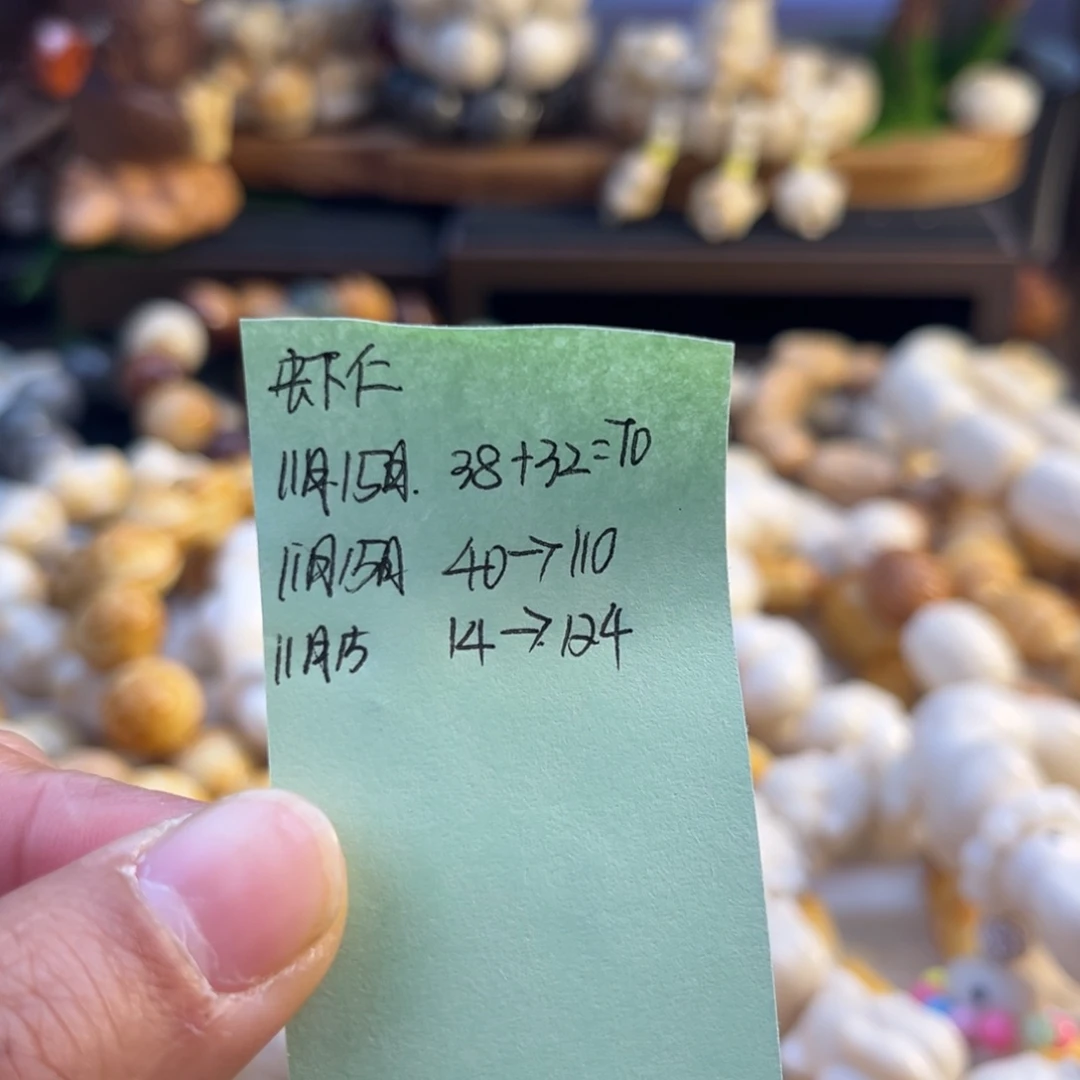 虾仁
11月15日. 38+32=70
11月15日 40→110
11月15 14→124